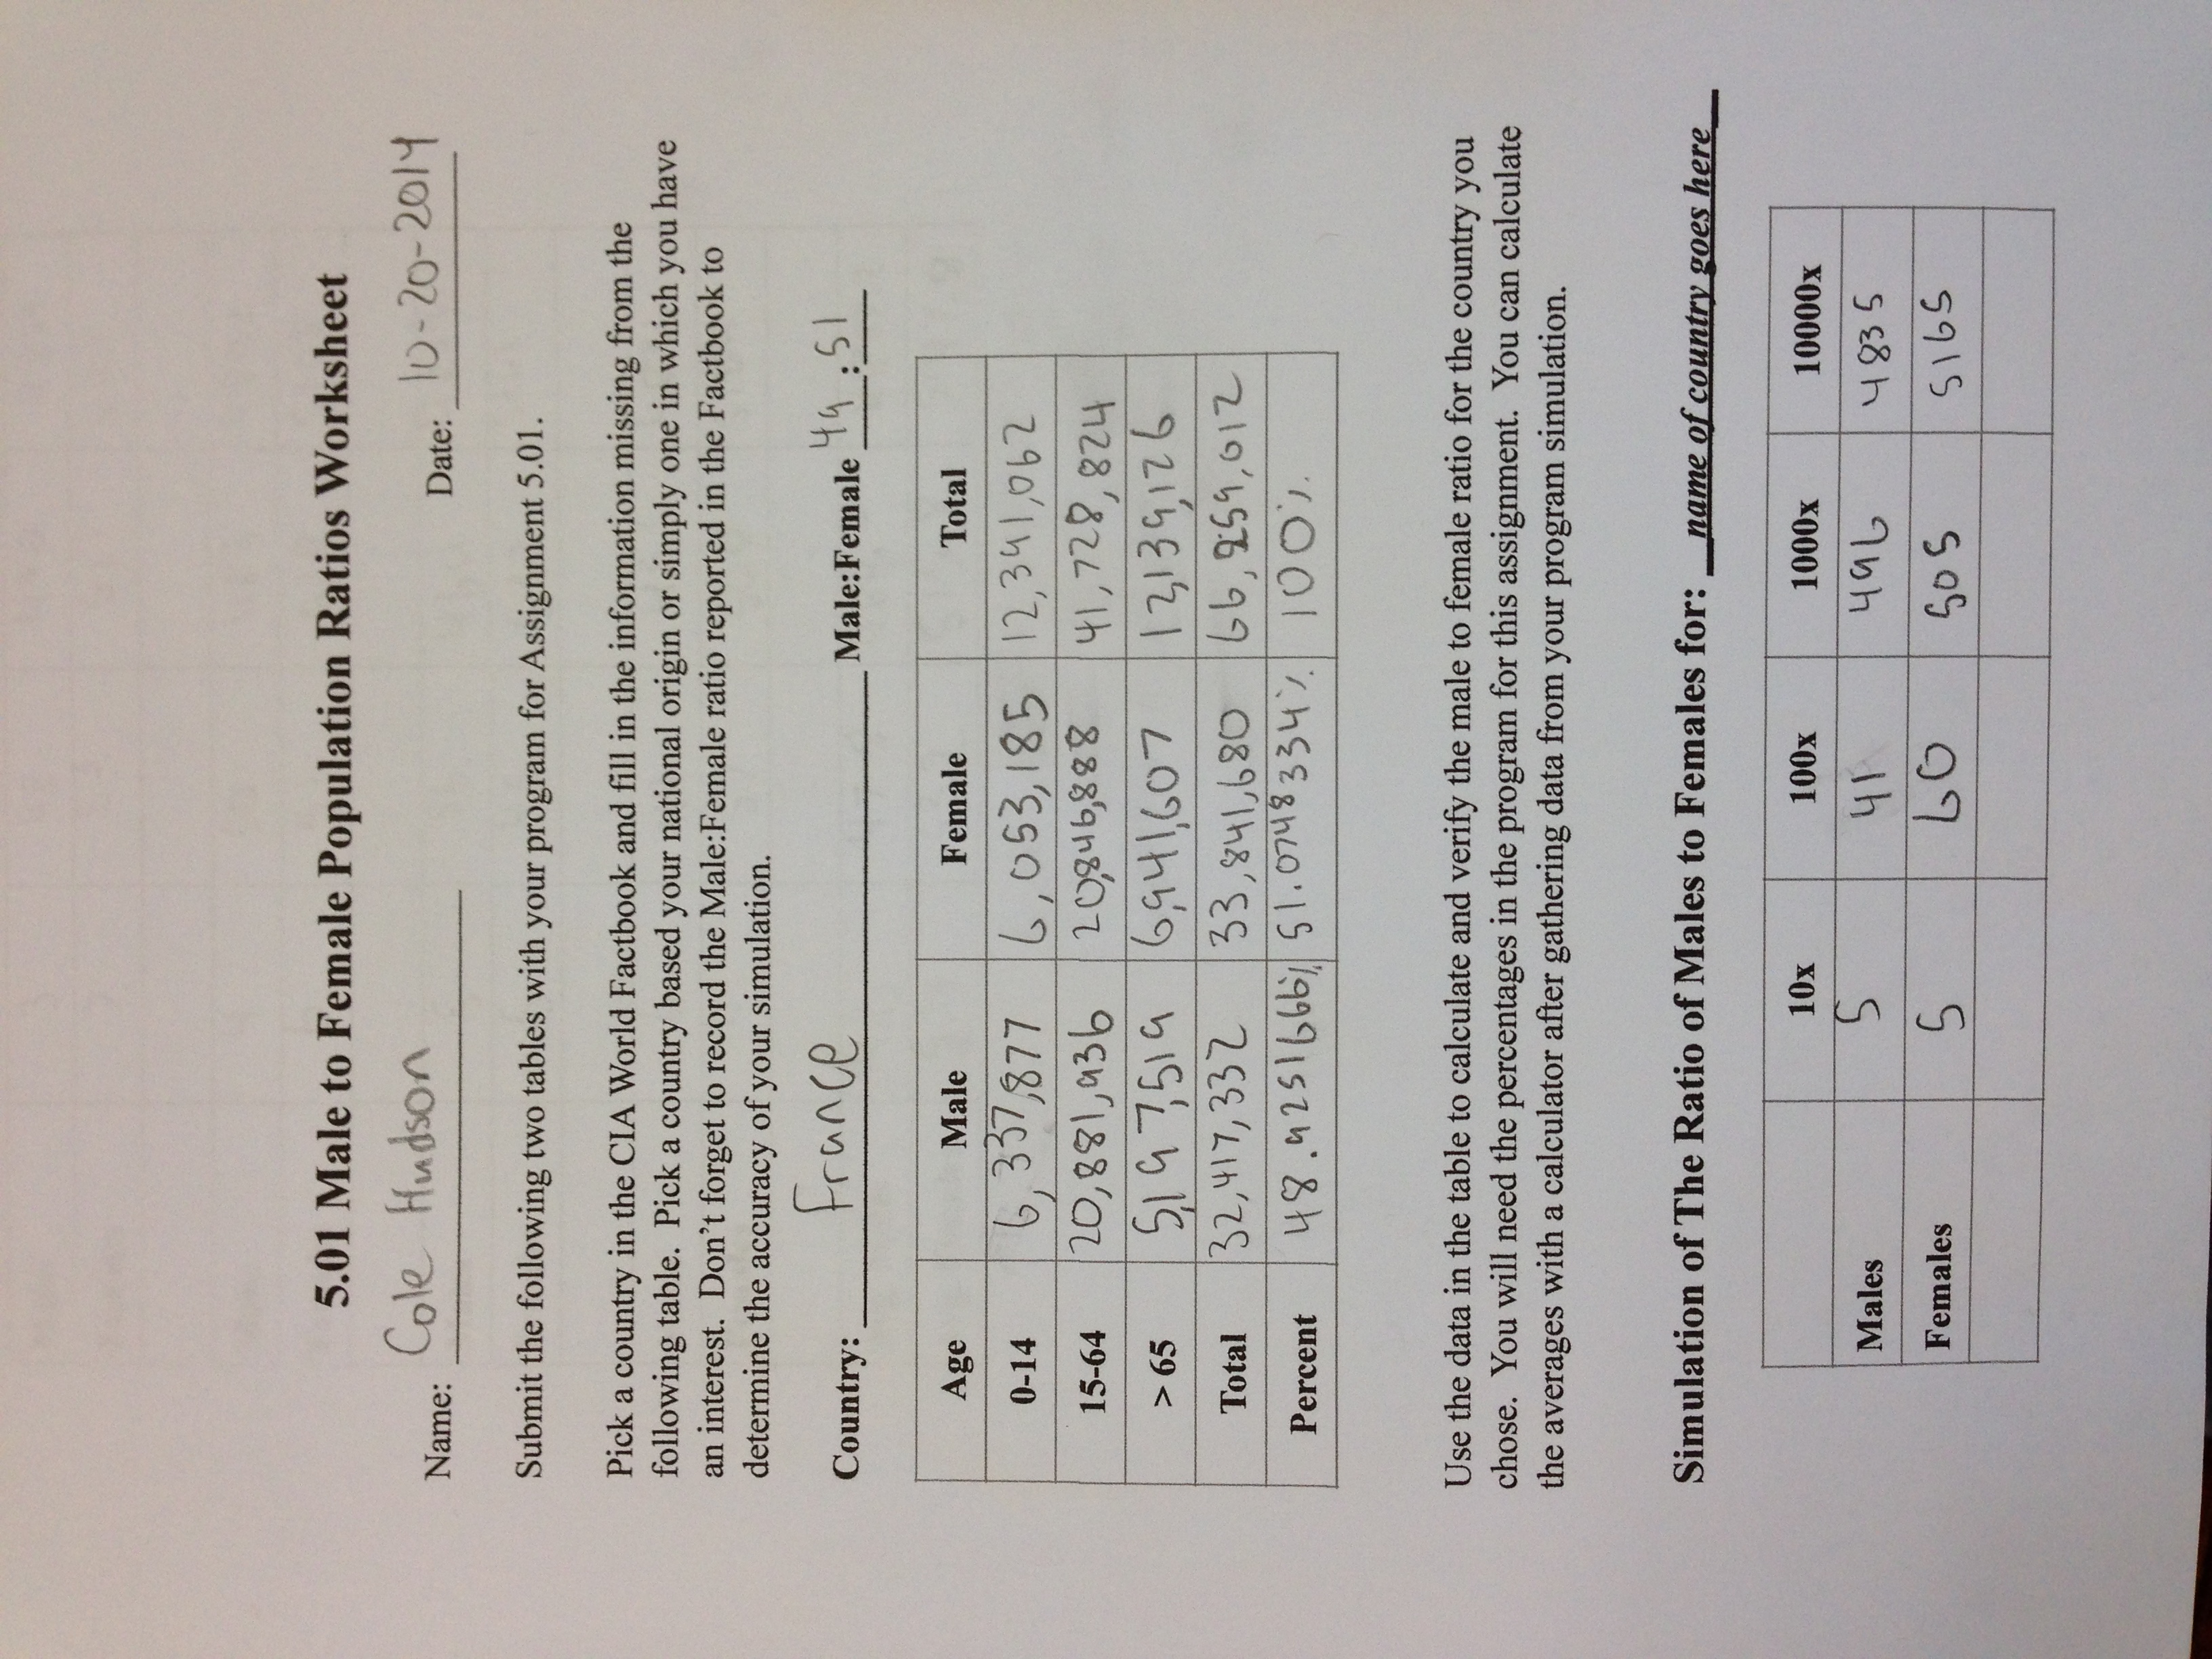 5.01 Male to Female Population Ratios Worksheet
Name: Cole Hudson Date: 10-20-2014
Submit the following two tables with your program for Assignment 5.01.
Pick a country in the CIA World Factbook and fill in the information missing from the
following table. Pick a country based your national origin or simply one in which you have
an interest. Don't forget to record the Male:Female ratio reported in the Factbook to
determine the accuracy of your simulation.
Country: France Male:Female 49:51
Age Male Female Total
0-14 6,337,877 6,053,185 12,391,062
15-64 20,881,936 20,846,888 41,728,824
> 65 5,197,519 6,941,607 12,139,126
Total 32,417,332 33,841,680 66,259,012
Percent 48.9251666% 51.0748334% 100%
Use the data in the table to calculate and verify the male to female ratio for the country you
chose. You will need the percentages in the program for this assignment. You can calculate
the averages with a calculator after gathering data from your program simulation.
Simulation of The Ratio of Males to Females for: name of country goes here
10x 100x 1000x 10000x
Males 5 41 496 4835
Females 5 60 505 5165